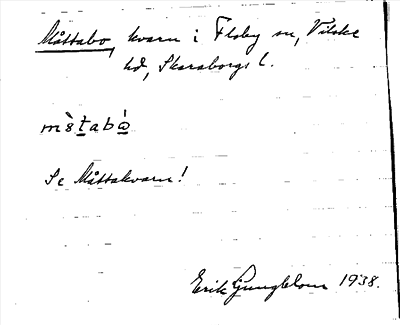 Måttabo, kvarn i Floby sn, Vilske
hd, Skaraborgs l.
Se Måttakvarn!
Erik Ljungblom 1938.